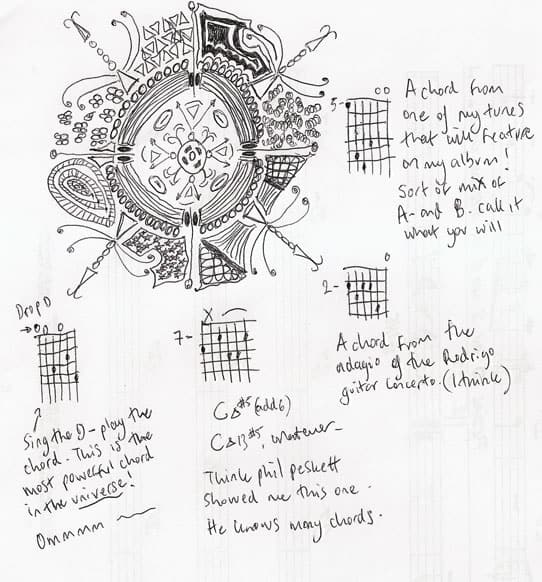 5-
oo
A chord from
one of my tunes
that will feature
on my album!
Sort of mix of
A- and B. call it
what you will
2-
o
A chord from the
adagio of the Rodrigo
guitar concerto. (I think)
Drop D
→oo o
Sing the D - play the
chord. This is the
most powerful chord
in the universe!
Ommmm
X
7-
C△#5 (add6)
C△13#5, whatever -
Think phil peskett
showed me this one.
He knows many chords.